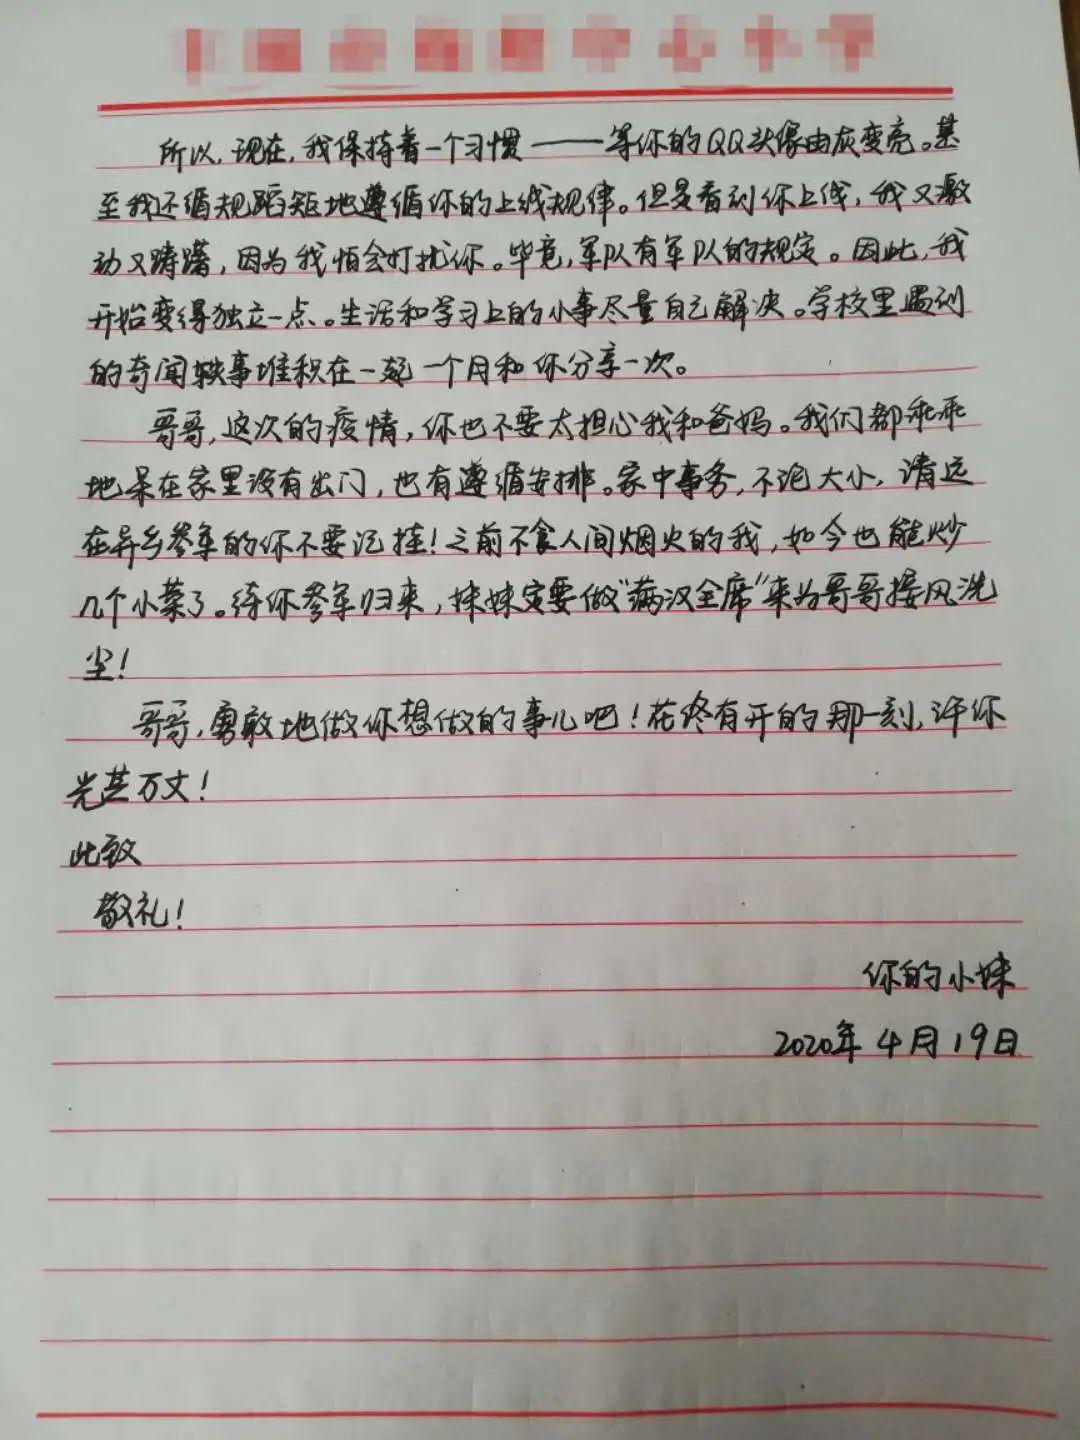 所以,现在,我保持着一个习惯——等你的QQ头像由灰变亮。甚
至我还循规蹈矩地遵循你的上线规律。但是看到你上线,我又激
动又踌躇,因为我怕会打扰你。毕竟,军队有军队的规定。因此,我
开始变得独立一点。生活和学习上的小事尽量自己解决。学校里遇到
的奇闻轶事堆积在一起一个月和你分享一次。
哥哥,这次的疫情,你也不要太担心我和爸妈。我们都乖乖
地呆在家里没有出门,也有遵循安排。家中事务,不论大小,请远
在异乡参军的你不要记挂!之前不食人间烟火的我,如今也能炒
几个小菜了。待你参军归来,妹妹定要做“满汉全席”来为哥哥接风洗
尘!
哥哥,勇敢地做你想做的事儿吧!花终有开的那一刻,许你
光芒万丈!
此致
敬礼!
你的小妹
2020年4月19日